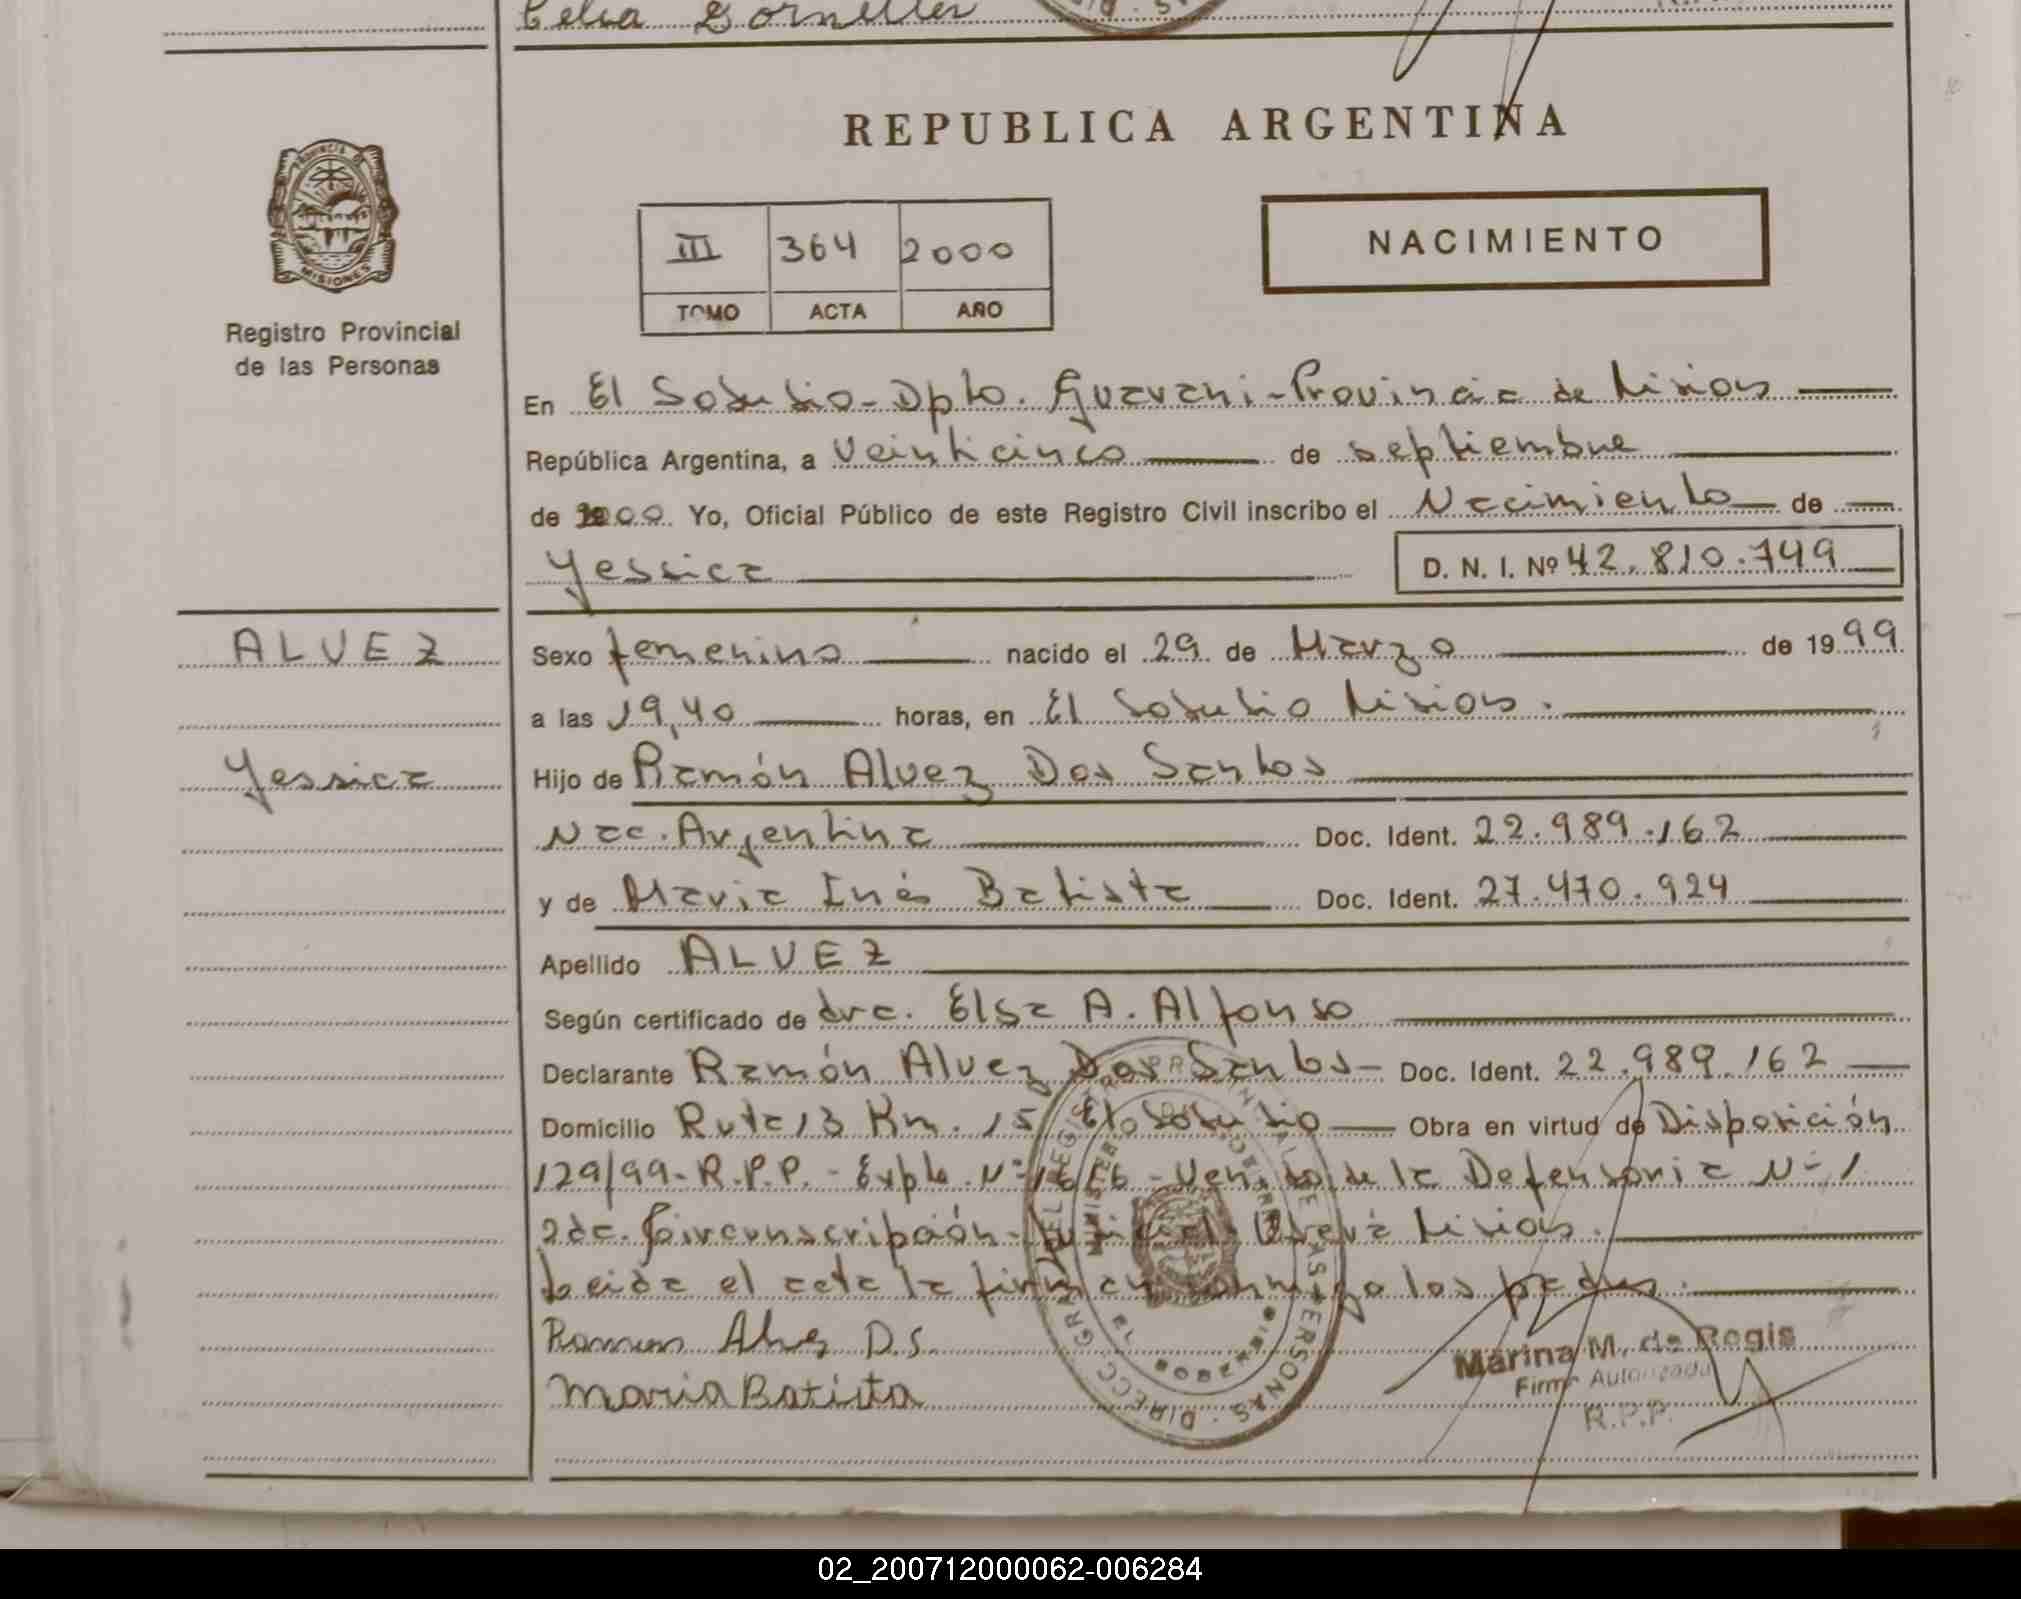 Celia
REPUBLICA ARGENTINA
PROVINCIA DE
MISIONES
Registro Provincial
de las Personas
III 364 2000
TOMO ACTA AÑO
NACIMIENTO
En El Soberbio - Dpto. Guarani - Provincia de Misiones
República Argentina, a Veinticinco de septiembre
de 2000 Yo, Oficial Público de este Registro Civil inscribo el Nacimiento de
Yessica D. N. I. Nº 42.810.749
ALVEZ
Yessica
Sexo femenino nacido el 29 de Marzo de 1999
a las 19,40 horas, en El Soberbio Misiones.
Hijo de Ramón Alvez Dos Santos
Nac. Argentina Doc. Ident. 22.989.162
y de Maria Inés Batista Doc. Ident. 27.470.924
Apellido ALVEZ
Según certificado de dra. Elsa A. Alfonso
Declarante Ramón Alvez Dos Santos - Doc. Ident. 22.989.162
Domicilio Ruta 13 Km. 15 El Soberbio Obra en virtud de Disposición
129/99 - R.P.P. - Expte. Nº - de la Defensoria Nº 1
2da. Circunscripción Oberá Misiones.
Leida el acta la firman conmigo los padres.
Ramon Alvez D.S.
Maria Batista
Marina M. de Regis
Firma Autorizada
R.P.P.
02_200712000062-006284